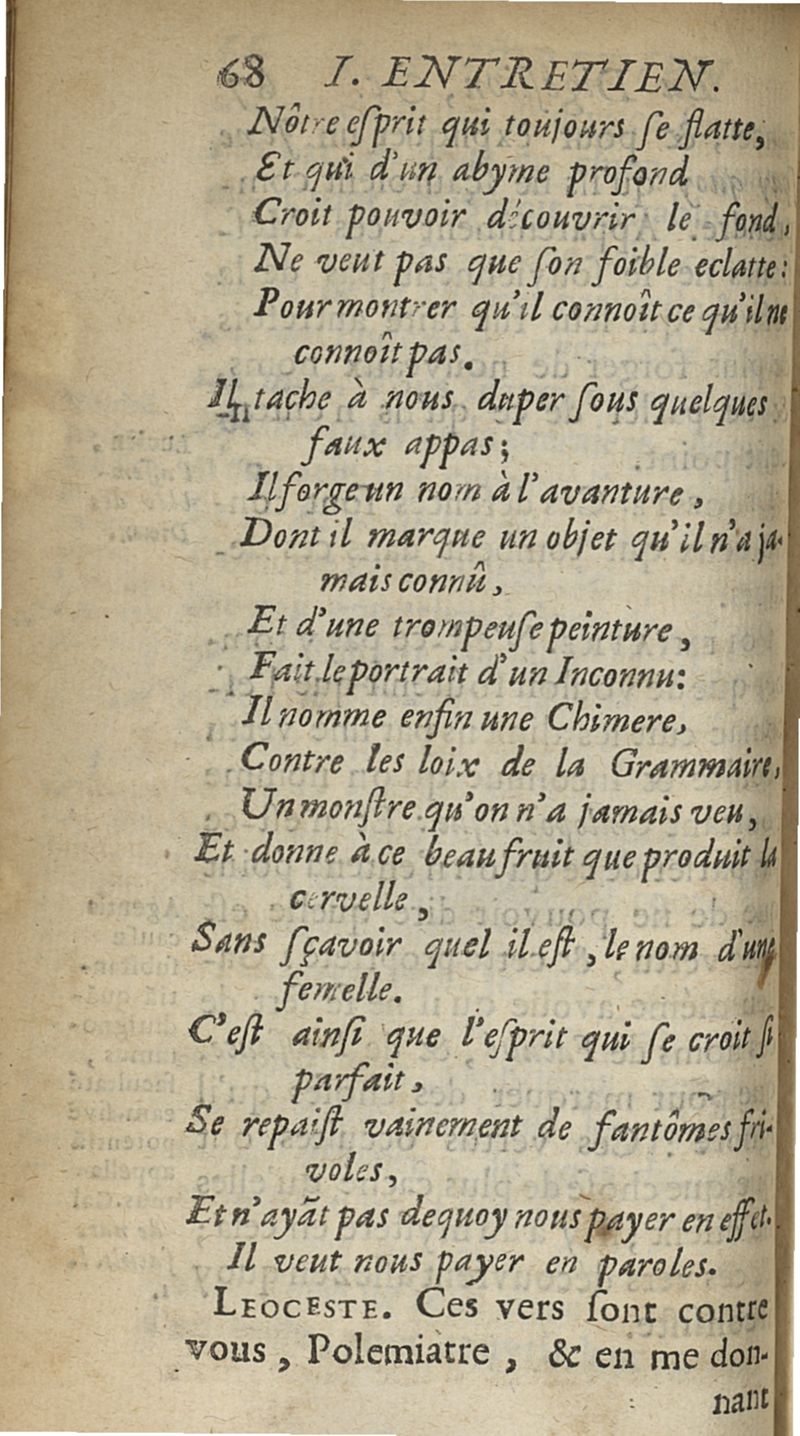 68 I. ENTRETIEN.
Nôtre eſprit qui toujours ſe flatte,
Et qui d'un abyme profond
Croit pouvoir découvrir le fond,
Ne veut pas que ſon foible eclatte:
Pour montrer qu'il connoît ce qu'il ne
connoît pas.
Il tache à nous duper ſous quelques
faux appas;
Il forge un nom à l'avanture,
Dont il marque un objet qu'il n'a ja-
mais connû,
Et d'une trompeuſe peinture,
Fait le portrait d'un Inconnu:
Il nomme enfin une Chimere,
Contre les loix de la Grammaire,
Un monſtre qu'on n'a jamais veu,
Et donne à ce beau fruit que produit la
cervelle,
Sans ſçavoir quel il eſt, le nom d'une
femelle.
C'eſt ainſi que l'eſprit qui ſe croit ſi
parfait,
Se repaiſt vainement de fantômes fri-
voles,
Et n'ayãt pas dequoy nous payer en effet.
Il veut nous payer en paroles.
LEOCESTE. Ces vers ſont contre
vous, Polemiatre, & en me don-
nant